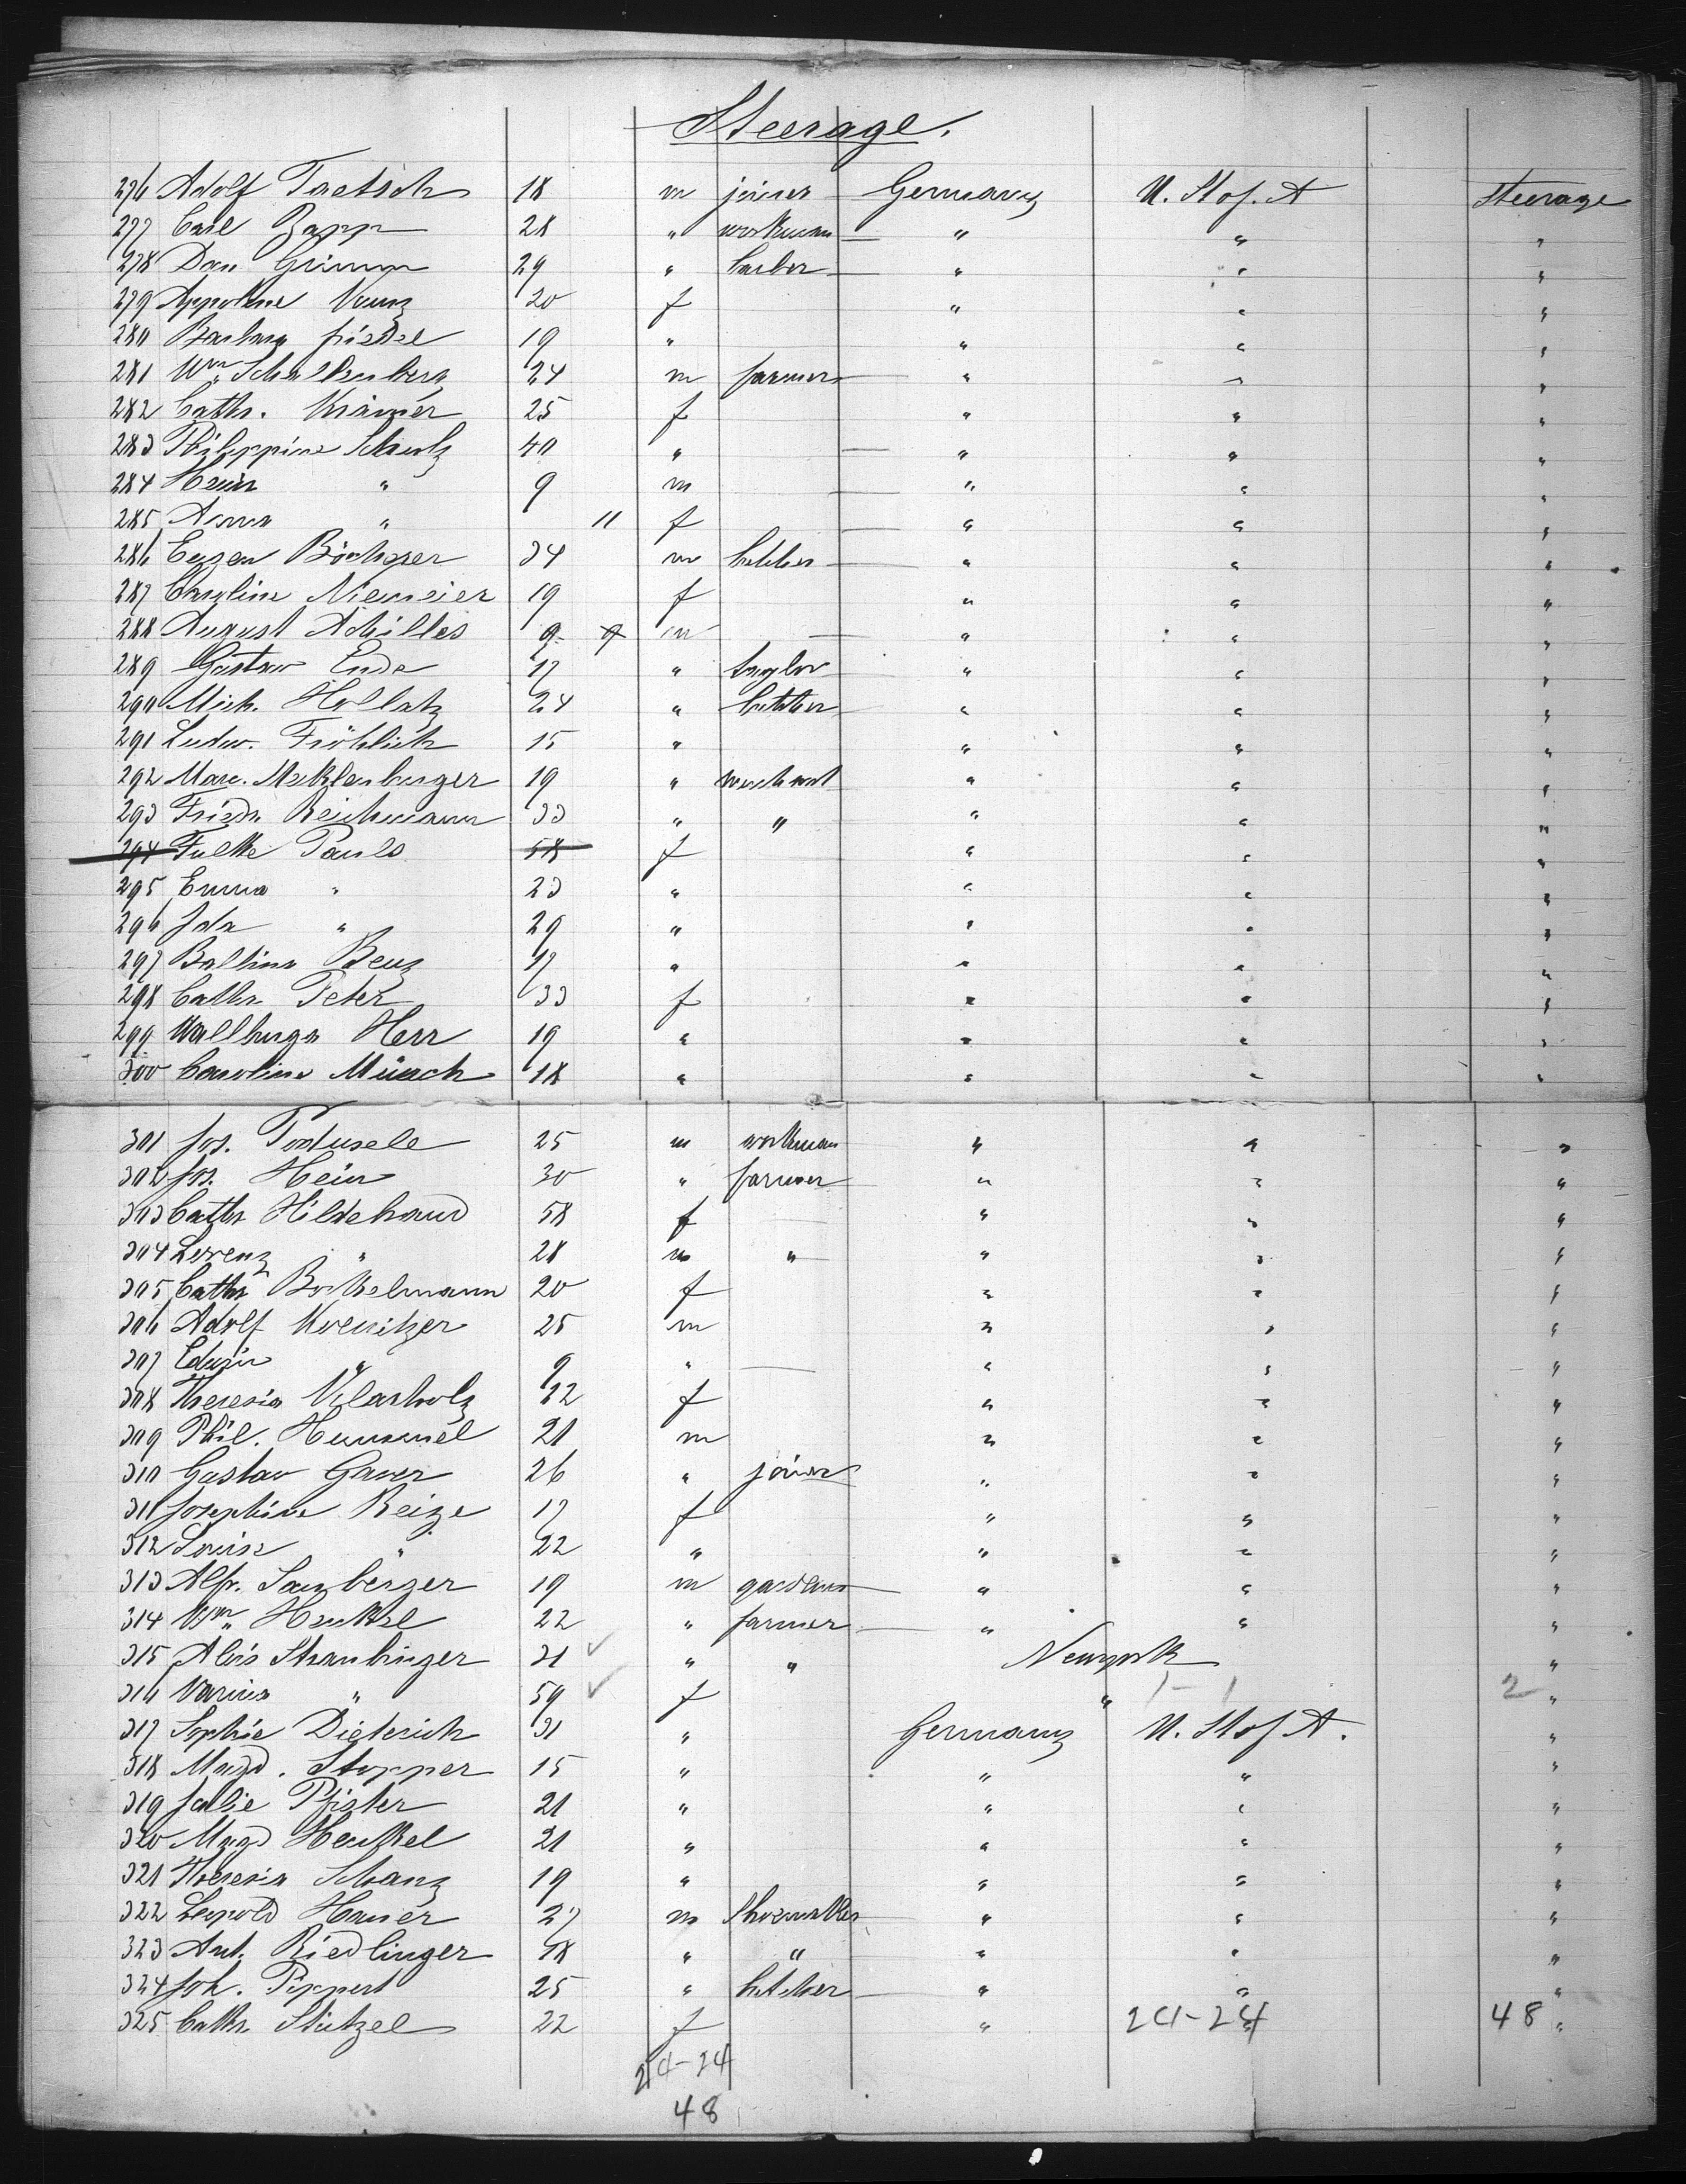 Steerage.
276 Adolf Taetsch 18 m joiner Germany U. St of. A Steerage
277 Carl Rapp 28 " workman — " " "
278 Dan Grimm 29 " barber — " " "
279 Appoline Kunz 20 f " " "
280 Barbara Friedel 19 " " " "
281 Wm Schallenberg 24 m farmer — " " "
282 Cathr. Krämer 25 f " " "
283 Philippine Schulz 40 " — " " "
284 Heinr " 9 m — " " "
285 Anna " 11 f — " " "
286 Eugen 34 m — " " "
287 Caroline Niemeier 19 f " " "
288 August Achilles 9 9 m — " " "
289 Gustav Ende 17 " taylor — " " "
290 Mich. Hollatz 24 " butcher — " " "
291 Ludw. Fröhlich 15 " " " "
292 Marc. Meklenburger 19 " merchant " " "
293 Friedr Reichmann 33 " " " " "
294 Fulke Pauls 58 f " " "
295 Emma " 23 " " " "
296 Ida " 29 " " " "
297 Benz 17 " " " "
298 Cathr Peter 33 f " " "
299 Wallburga Herr 19 " " " "
300 Caroline Münch 18 " " " "
301 Jos. 25 m workman " " "
302 Jos. Hein 30 " farmer " " "
303 Cathr Hildebrand 58 f — " " "
304 Lorenz " 28 m " " " "
305 Cathr Bockelmann 20 f " " "
306 Adolf 25 m " " "
307 Edwin " 9 " — " " "
308 Theresia 22 f " " "
309 Phil. Hummel 21 m " " "
310 Gustav Gauer 26 " joiner " " "
311 Josephine Reize 17 f " " "
312 Louise " 22 " " " "
313 Alfr. 19 m gardener — " " "
314 Wm Henkel 22 " farmer — " " "
315 Alois Straubinger 31 ✓ " " Newyork "
316 " 59 ✓ f " 1 - 1 2 "
317 Sophie Dieterich 31 " Germany U. St of A. "
318 Magd. Stopper 15 " " " "
319 Julie Pfister 21 " " " "
320 Magd Henkel 21 " " " "
321 Theresia Schanz 19 " " " "
322 Leopold Hauer 27 m shoemaker " " "
323 Ant. Riedlinger 18 " " " " "
324 Joh. Pippert 25 " butcher — " " "
325 Cathr Stützel 22 f " 24-24 " 48 "
24-24
48